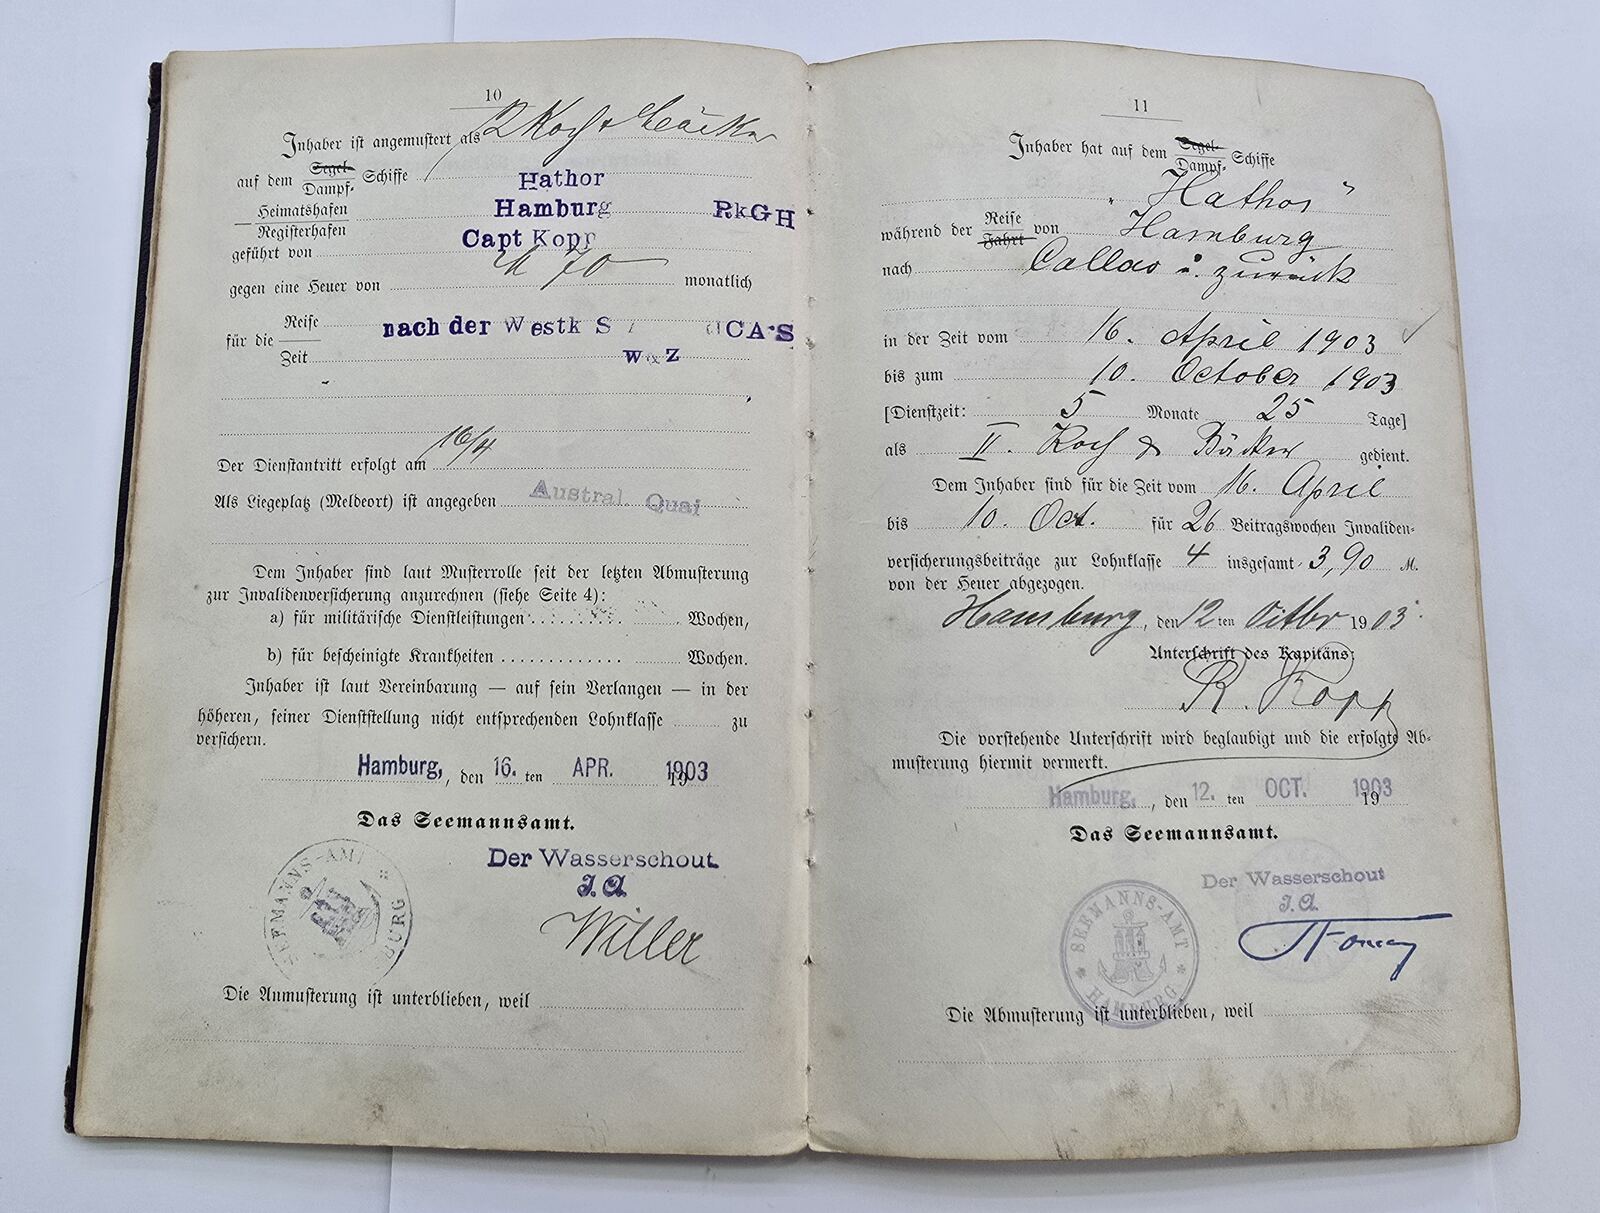 10
Inhaber ist angemustert als 2 Koch & Bäcker
auf dem Segel- Dampf- Schiffe
Hathor
Heimatshafen
Registerhafen
Hamburg RkGH
geführt von Capt Kopp
gegen eine Heuer von M 70 monatlich
für die Reise
Zeit
nach der Westk S CA·S
W&Z
Der Dienstantritt erfolgt am 16/4
Als Liegeplatz (Meldeort) ist angegeben Austral. Quai
Dem Inhaber sind laut Musterrolle seit der letzten Abmusterung
zur Invalidenversicherung anzurechnen (siehe Seite 4):
a) für militärische Dienstleistungen Wochen,
b) für bescheinigte Krankheiten Wochen.
Inhaber ist laut Vereinbarung — auf sein Verlangen — in der
höheren, seiner Dienststellung nicht entsprechenden Lohnklasse zu
versichern.
Hamburg, , den 16. ten APR. 1903
19
Das Seemannsamt.
SEEMANNS-AMT * BURG
Der Wasserschout
J.A.
Willer
Die Anmusterung ist unterblieben, weil
11
Inhaber hat auf dem Segel- Dampf- Schiffe
"Hathor"
während der Reise Fahrt von Hamburg
nach Callao u. zurück
in der Zeit vom 16. April 1903
bis zum 10. October 1903
[Dienstzeit: 5 Monate 25 Tage]
als II. Koch & Bäcker gedient.
Dem Inhaber sind für die Zeit vom 16. April
bis 10. Oct. für 26 Beitragswochen Invaliden-
versicherungsbeiträge zur Lohnklasse 4 insgesamt 3,90 M.
von der Heuer abgezogen.
Hamburg, den 12 ten Octbr 1903.
Unterschrift des Kapitäns:
R. Kopp
Die vorstehende Unterschrift wird beglaubigt und die erfolgte Ab-
musterung hiermit vermerkt.
Hamburg, , den 12. ten OCT. 1903
19
Das Seemannsamt.
Der Wasserschout
J.A.
* SEEMANNS-AMT * HAMBURG
Die Abmusterung ist unterblieben, weil